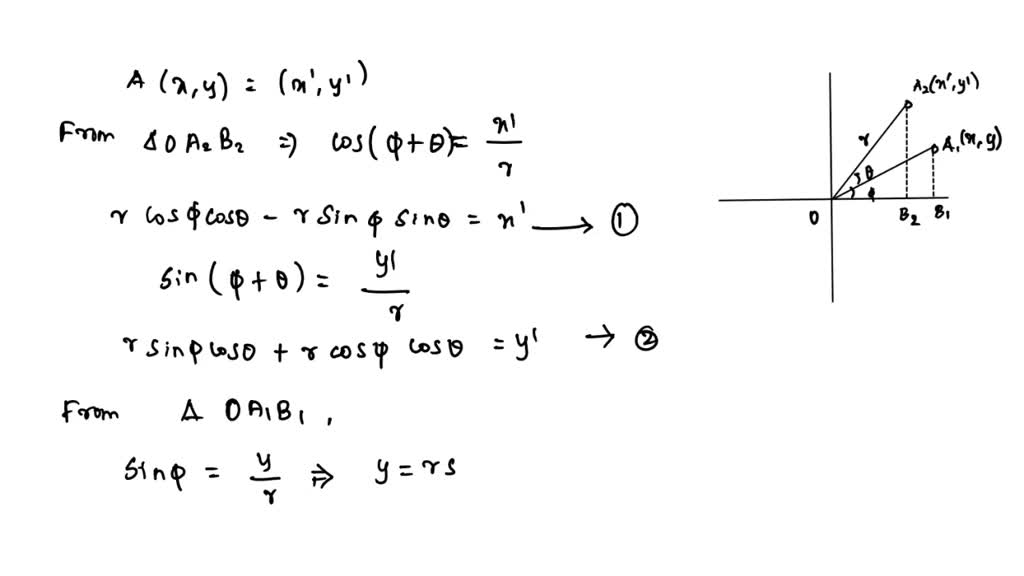 A (x,y) = (x',y')
From Δ O A₂ B₂ ⇒ cos(φ+θ) = x'/r
r cosφ cosθ - r sin φ sinθ = x' ⟶ ①
sin (φ+θ) = y'/r
r sinφ cosθ + r cosφ cosθ = y' → ②
From Δ OA₁B₁ ,
sinφ = y/r ⇒ y = rs
A₂(x',y')
r
A₁(x,y)
θ
φ
O
B₂ B₁